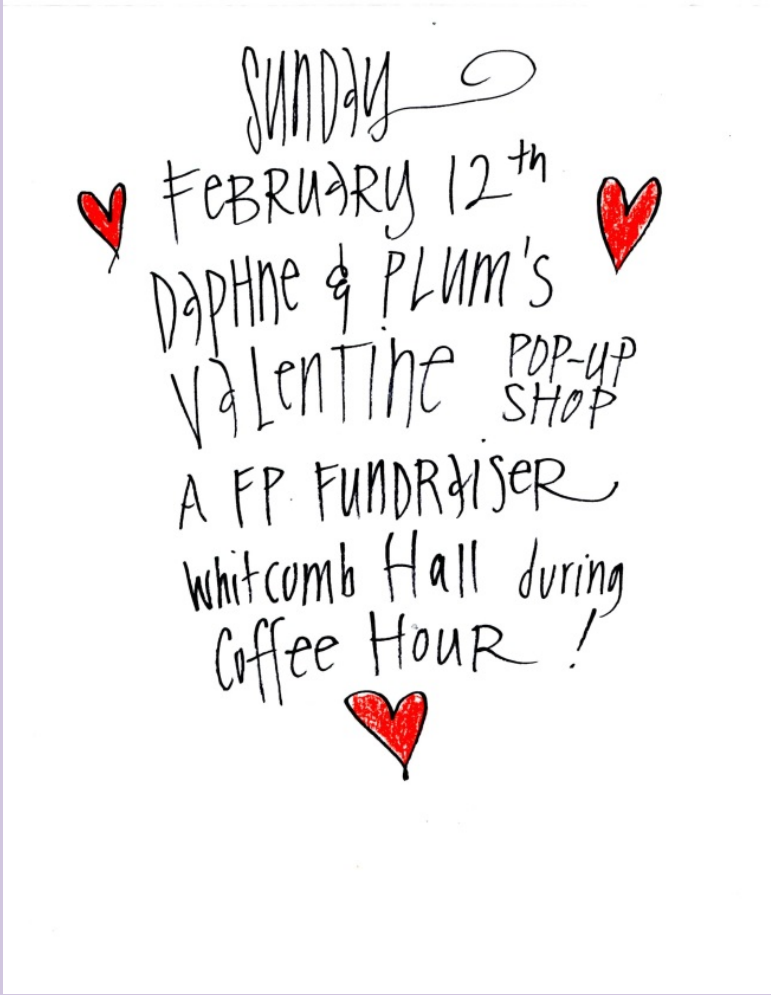 Sunday
February 12th
Daphne & Plum's
Valentine POP-UP
SHOP
A FP FUNDRaiseR
whitcomb Hall during
Coffee HouR !